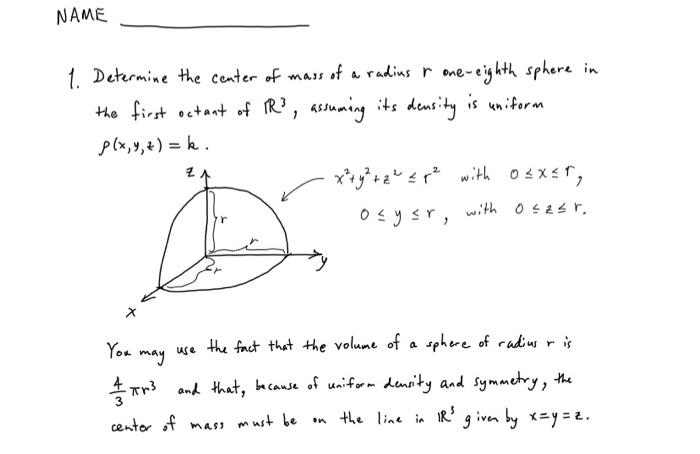 NAME
1. Determine the center of mass of a radius r one-eighth sphere in
the first octant of ℝ³, assuming its density is uniform
ρ(x,y,z) = k.
z
x²+y²+z² ≤ r² with 0 ≤ x ≤ r,
0 ≤ y ≤ r, with 0 ≤ z ≤ r.
r
r
r
y
x
You may use the fact that the volume of a sphere of radius r is
4/3 πr³ and that, because of uniform density and symmetry, the
center of mass must be on the line in ℝ³ given by x=y=z.